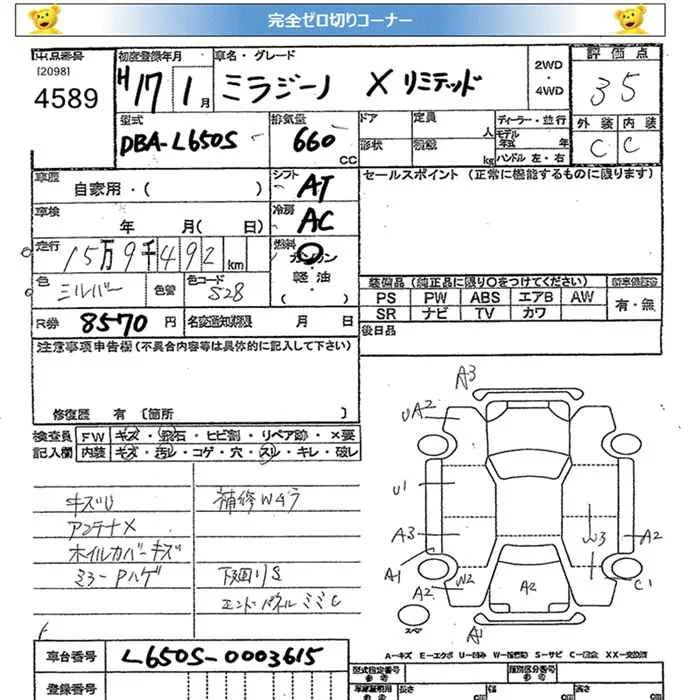 完全ゼロ切りコーナー
出品番号
[2098]
4589
初度登録年月
H17 1月
車名・グレード
ミラジーノ X リミテッド
2WD
・
4WD
評価点
3 5
外装 内装
C C
型式
DBA-L650S
排気量
660
CC
ドア
定員
人
形状
積載
kg
ディーラー・並行
モデル
年式 年
ハンドル 左・右
車歴
自家用・( )
シフト
AT
車検
年 月( 日)
冷房
AC
走行
15万9千492 km
燃料
ガソリン
・
軽油
・
( )
色
シルバー
色替
色コード
S28
R券 8570 円
名変通知期限 月 日
セールスポイント (正常に機能するものに限ります)
装備品 (純正品に限り○をつけてください)
新車保証書
PS PW ABS エアB AW
SR ナビ TV カワ
有・無
後日品
注意事項申告欄(不具合内容等は具体的に記入して下さい)
修復歴 有 [箇所 ]
検査員
記入欄
FW キズ・飛石・ヒビ割・リペア跡・×要
内装 キズ・汚レ・コゲ・穴・スレ・キレ・破レ
キズU
アンテナX
ホイルカバーキズ
ミラーPハゲ
補修Wムラ
下回りS
エンドパネルミミC
A3
UA2
U1
A3
A1
A2
W2
A2
W3
A2
C1
A1
スペア
A-キズ E-エクボ U-凹み W-補修跡 S-サビ C-腐食 XX-交換済
車台番号 L650S-0003615
登録番号
型式指定番号
参考
類別区分番号
参考
車庫証明用
参考
長さ
cm
幅
cm
高さ
cm